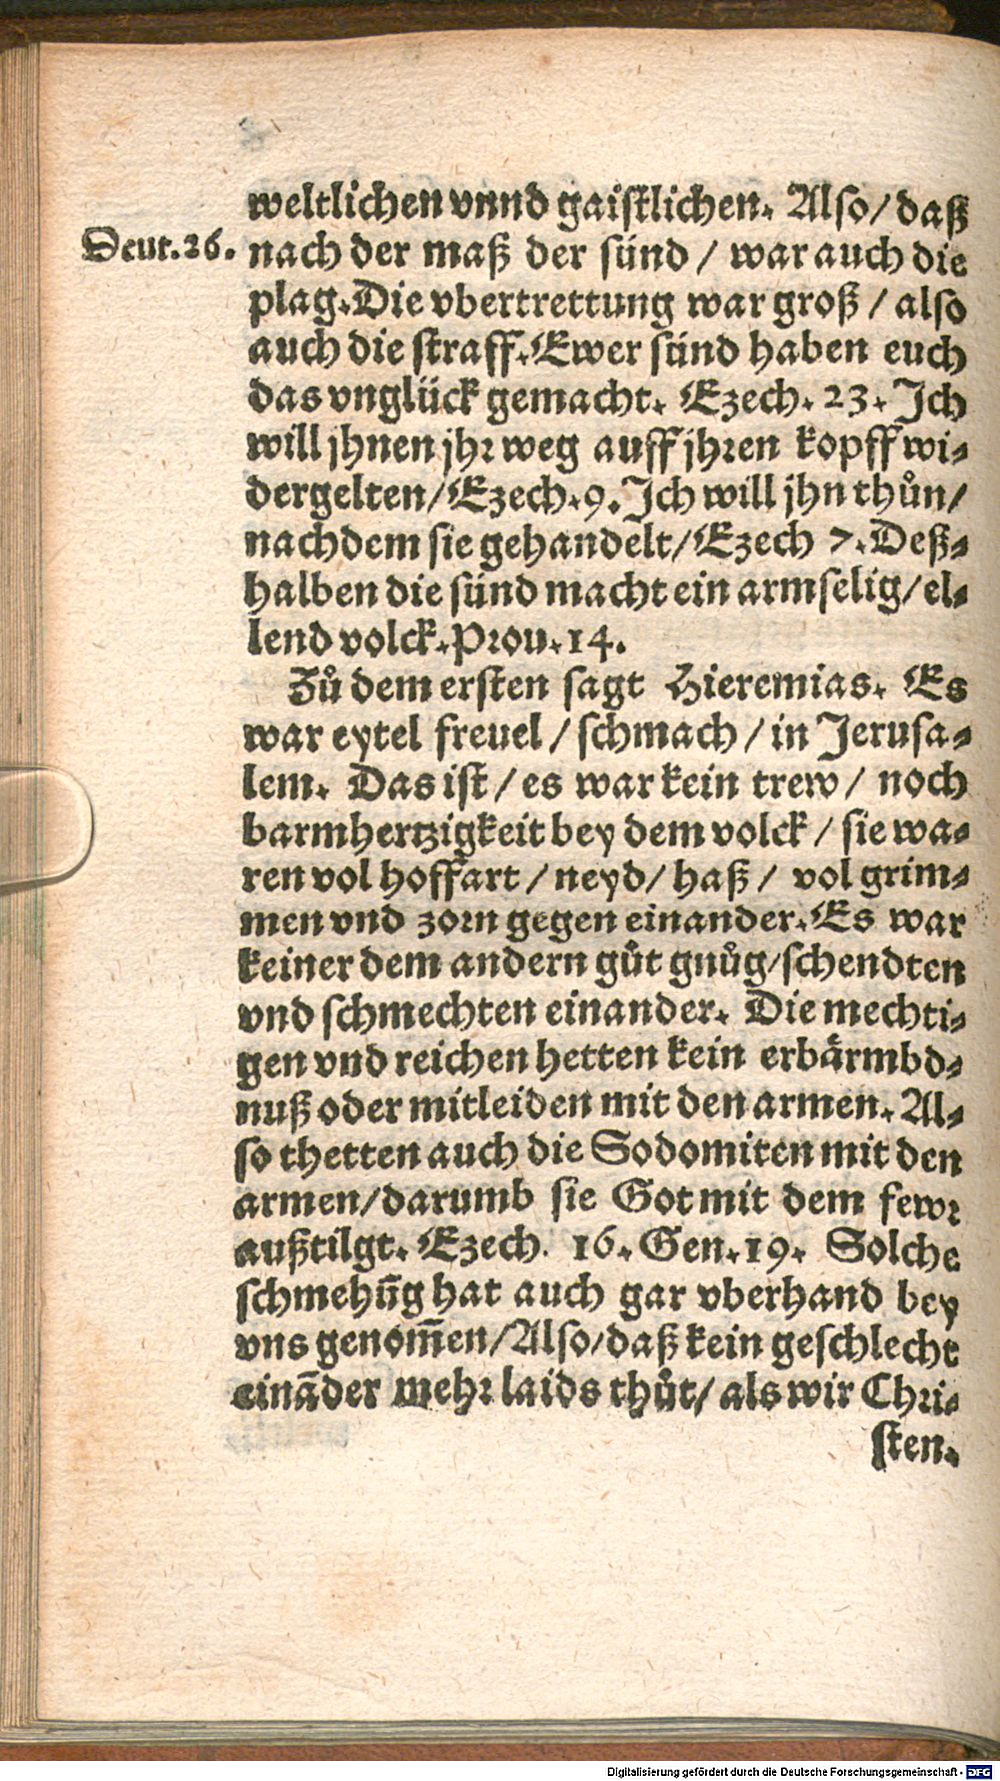 weltlichen vnnd gaistlichen. Also/ daß
Deut. 26.
nach der maß der sünd / war auch die
plag. Die vbertrettung war groß / also
auch die straff. Ewer sünd haben euch
das vnglück gemacht. Ezech. 23. Ich
will jhnen jhr weg auff jhren kopff wi-
dergelten/ Ezech. 9. Ich will jhn thůn/
nachdem sie gehandelt/ Ezech 7. Deß-
halben die sünd macht ein armselig/ el-
lend volck. Prou. 14.
Zů dem ersten sagt Hieremias. Es
war eytel freuel / schmach / in Jerusa-
lem. Das ist / es war kein trew / noch
barmhertzigkeit bey dem volck / sie wa-
ren vol hoffart / neyd/ haß / vol grim-
men vnd zorn gegen einander. Es war
keiner dem andern gůt gnůg/ schendten
vnd schmechten einander. Die mechti-
gen vnd reichen hetten kein erbärmbd-
nuß oder mitleiden mit den armen. Al-
so thetten auch die Sodomiten mit den
armen/ darumb sie Got mit dem fewr
außtilgt. Ezech. 16. Gen. 19. Solche
schmehūg hat auch gar vberhand bey
vns genom̄en/ Also/ daß kein geschlecht
eināder mehr laids thůt/ als wir Chri-
sten.
Digitalisierung gefördert durch die Deutsche Forschungsgemeinschaft - DFG